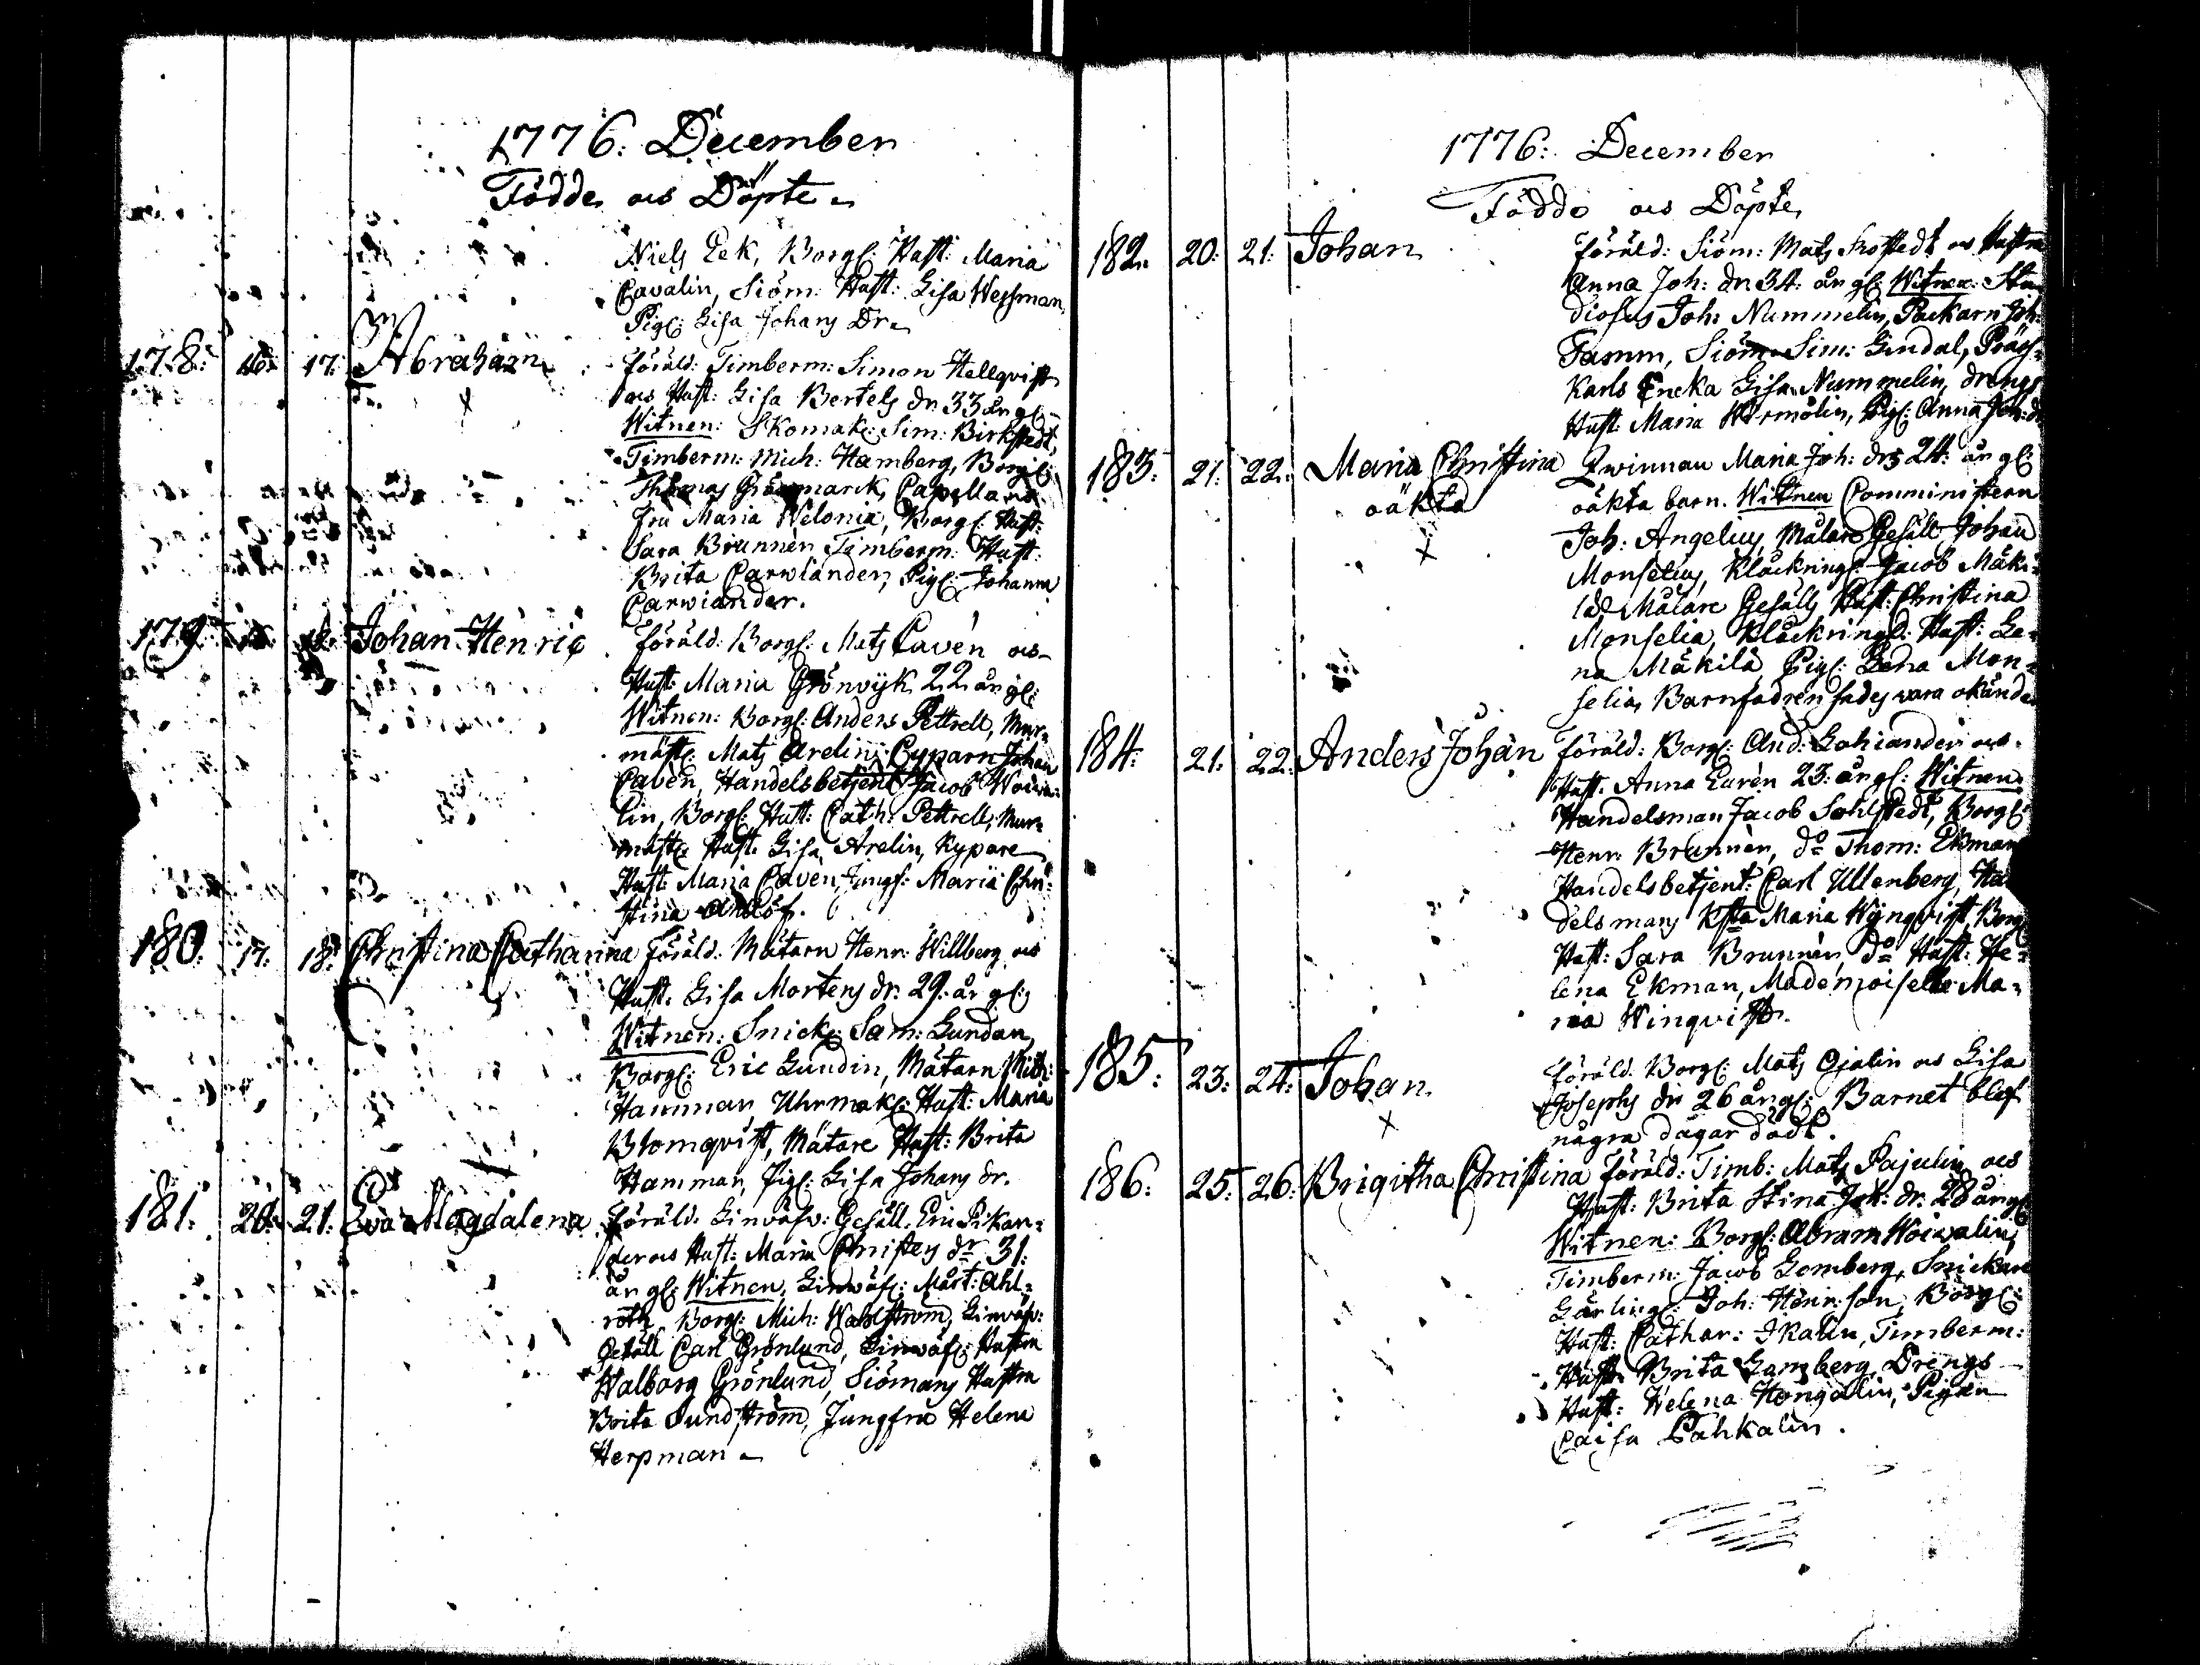 1776: December
Födde ocs Döpte
Niels Eek, Borgl: Hust: Maria
Cavalin, Siöm: Hust: Lisa Wessman,
Pigl: Lisa Johans Dr
178: 16: 17: Abraham föräld: Timberm: Simon Hellqvist
ocs Hust: Lisa Bertels dr 33 år gl:
Witnen: Skomak: Sim: Birkstedt,
Timberm: Mich: Hamberg, Borgl:
Thomas Grönmarck, Capellans
fru Maria Welonia, Borgl: Hust:
Sara Brunnèn, Timberm: Hust:
Brita Carwiander, Pigl: Johanna
Carwiander.
179: 18: Johan Henric föräld: Borgl: Mats Cavèn ocs
Hust: Maria Grönvijk 22 år gl:
Witnen: Borgl: Anders Pettrell, Mur-
mäst: Mats Arelin, Cyparn Johan
Cavèn, Handelsbetjent Jacob Woiwa-
lin, Borgl: Hust: Cath: Pettrell, Mur-
mäst: Hust: Lisa Arelin, Kypare
Hust: Maria Caven, Jungf: Maria Chri-
stina
180: 17: 18: Christina Catharina föräld: Mätarn Henr: Willberg ocs
Hust: Lisa Mortens dr: 29: år gl:
Witnen: Snick: Sam: Lundan,
Borgl: Eric Lundin, Mätarn Mich:
Hamman, Uhrmak: Hust: Maria
Blomqvist, Mätare Hust: Brita
Hamman, Pigl: Lisa Johans dr.
181: 20: 21: Eva Magdalena föräld: Linväfv: Gesäll: Eric Pikan-
der ocs Hust: Maria Christers dr 31:
år gl: Witnen, Linwäf: Mårt: Ahl-
roth, Borgl: Mich: Wahlström, Linväfv:
Gesäll Carl Grönlund, Linwäf: Hustru
Walborg Grönlund, Siömans Hustru
Brita Sundström, Jungfru Helena
Herpman
1776: December
Födde ocs Döpte
182: 20: 21: Johan föräld: Siöm: Mats Frostedt ocs Hustru
Anna Joh: dr 34: år gl: Witnen: Stu-
diosus Joh: Nummelin, Packarn Joh:
Tamm, Siöm: Sim: Lindal, Präst-
karls Encka Lisa Nummelin, drengs
Hust: Maria Wirmolin, Pigl: Anna Joh: dr
183: 21: 22: Maria Christina Qwinnan Maria Joh: drs 24: år gl:
oäkta oäkta barn. Wittnen Comministern
Joh: Angelius, Målare Gesäll Johan
Monselius, Klåckring: Jacob Mäki-
lä Målare Gesälls Hust: Christina
Monselia, Klåckringl: Hust: Le-
na Mäkilä, Pigl: Lena Mon-
selia, Barnfadren sades vara okänd
184: 21: 22: Anders Johan föräld: Borgl: And: Lohiander ocs
Hust: Anna Eurèn 23: år gl: Witnen:
Handelsman Jacob Sohlstedt, Borgl:
Henr: Brunnèn, do Thom: Ekman
Handelsbetjent: Carl Ullenberg, Han-
delsmans Ksta Maria Wijnqvist, Borgl:
Hust: Sara Brunnèn, do Hust: He-
lena Ekman, Mademoiselle Ma-
ria Winqvist.
185: 23: 24: Johan föräld: Borgl: Mats Ojalin ocs Lisa
Josephs dr 26 år gl: Barnet blef
några dagar dödt.
186: 25: 26: Brigitha Christina föräld: Timb: Mats Pajulin ocs
Hust: Brita Stina Joh: dr: 28 år gl:
Witnen: Borgl: Abram Woiwalin,
Timberm: Jacob Lomberg, Snickare
Lärling: Joh: Henr:son, Borgl:
Hust: Cathar: Ikalin, Timberm:
Hust: Brita Lomberg, Drengs
Hust: Helena Hongolin, Pigan
Caisa Pahkalin.